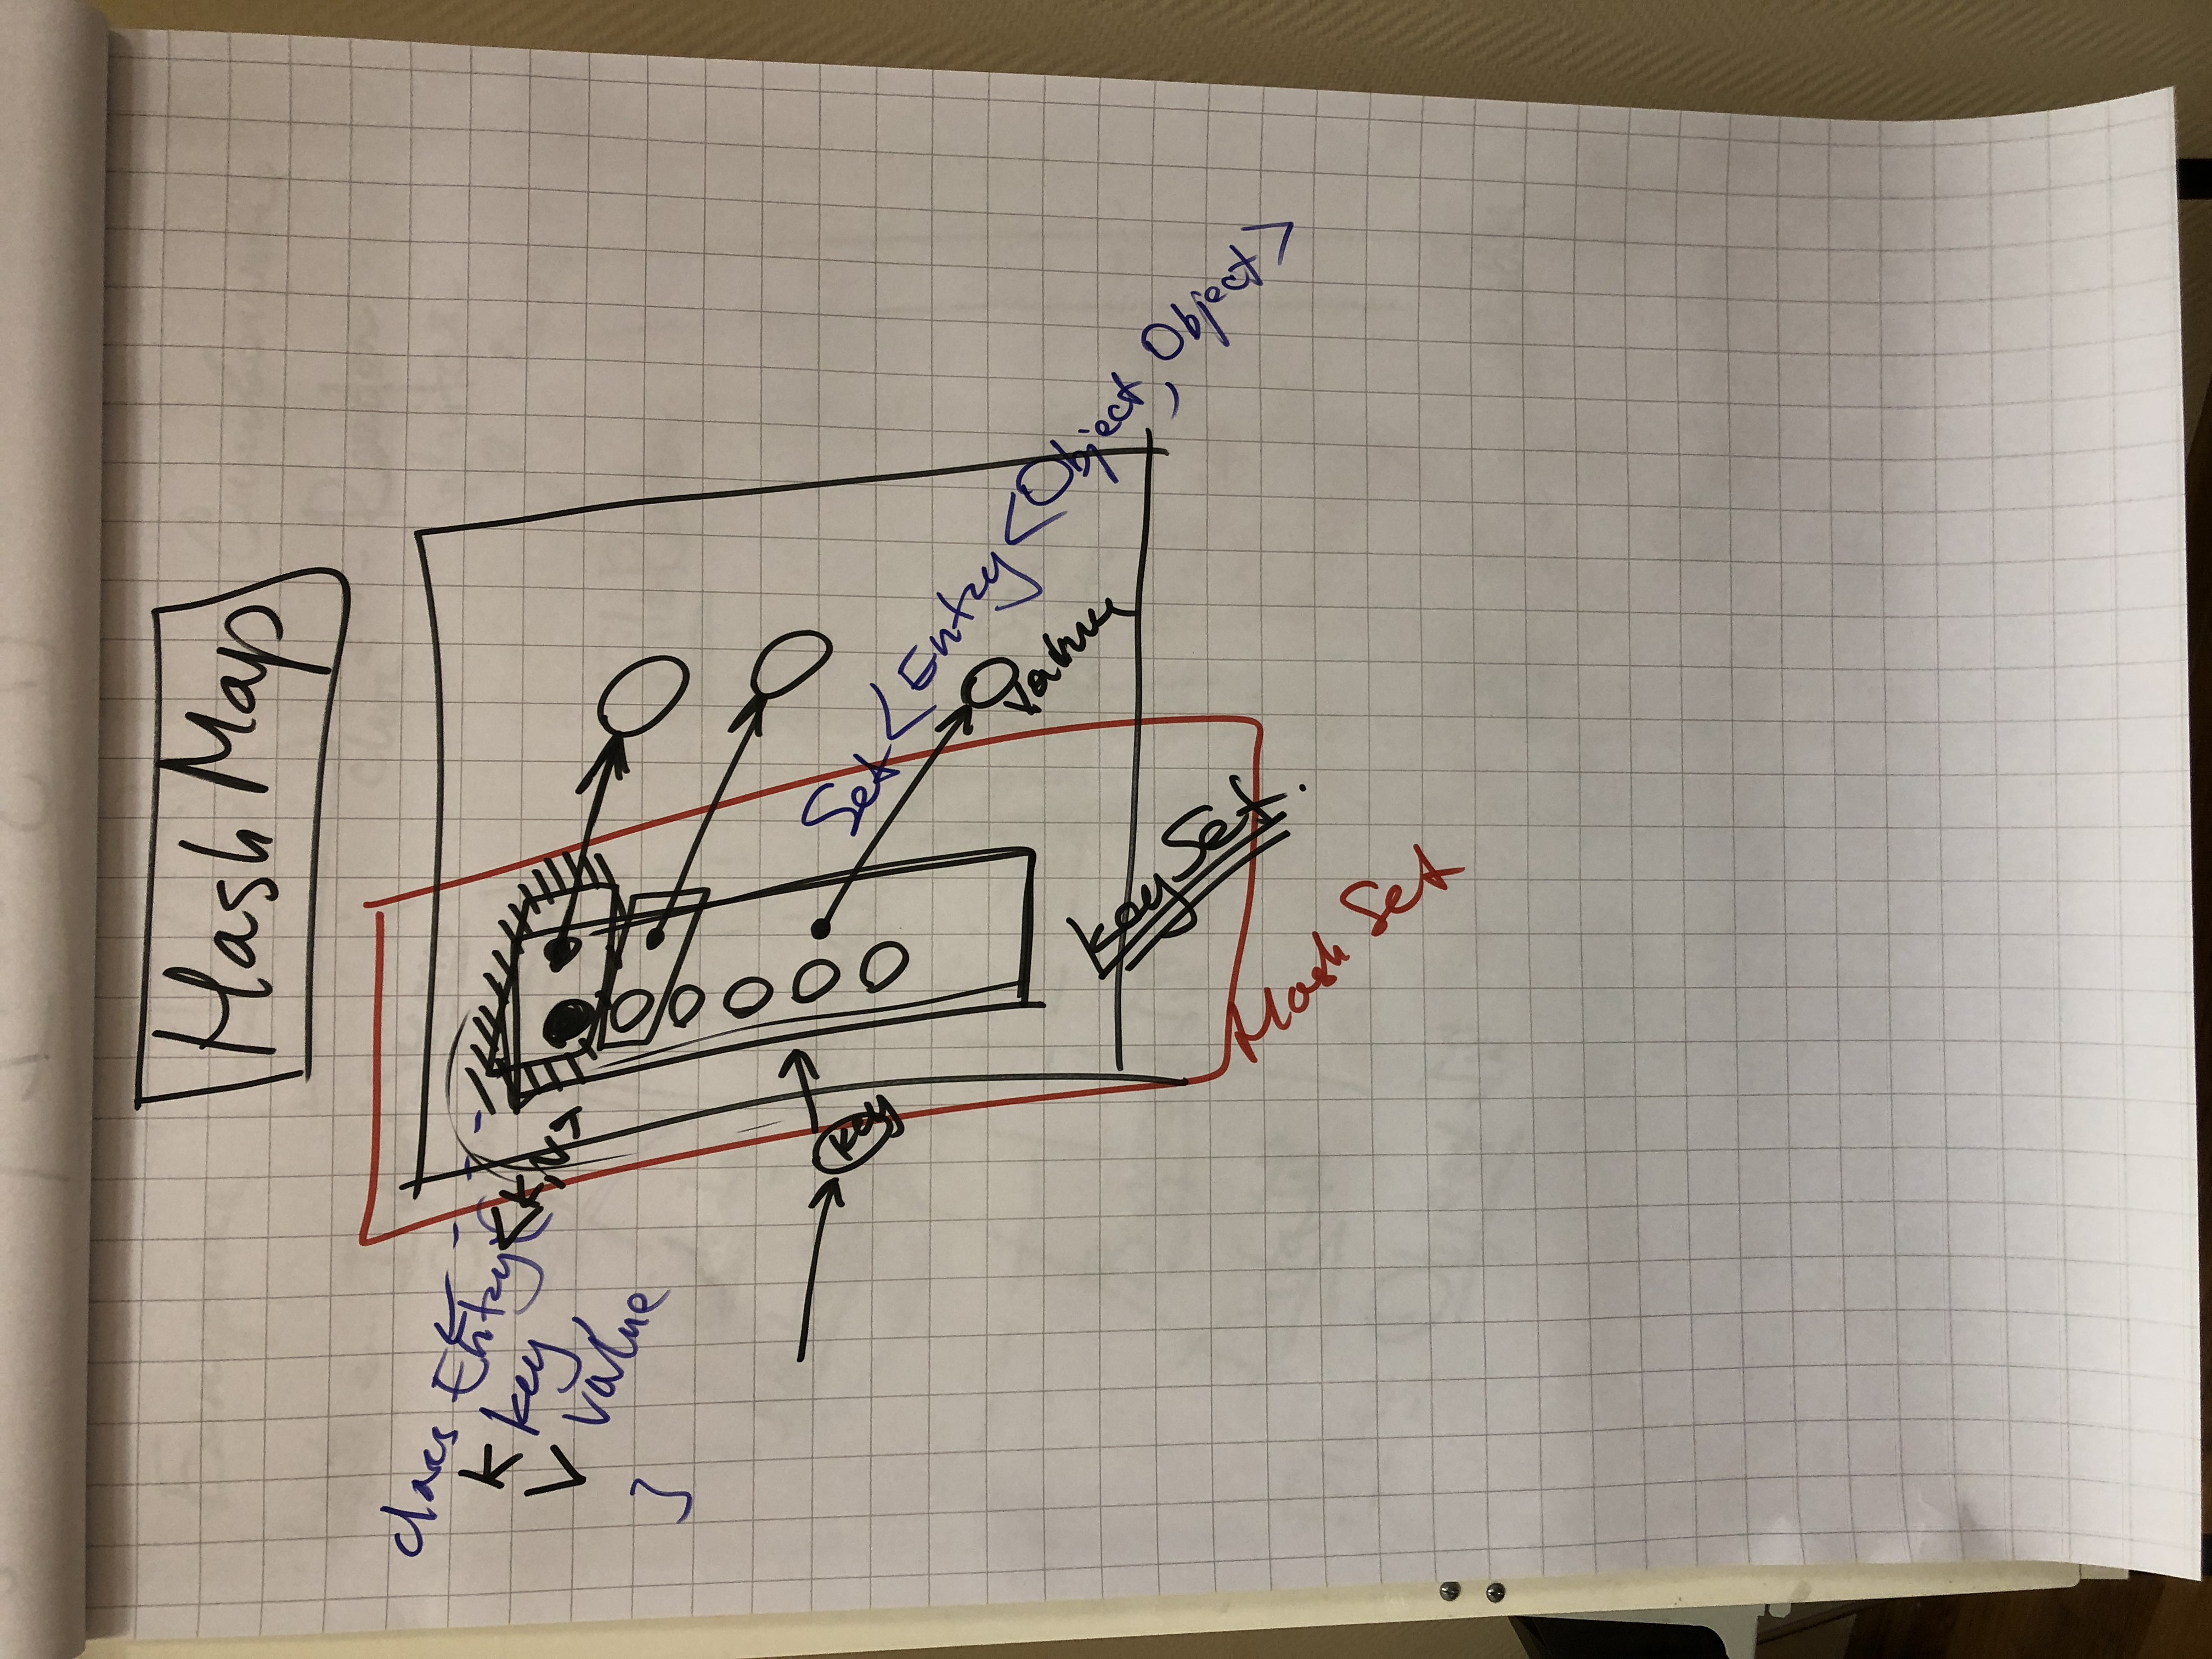 Hash Map
class Entry{<K,V>
K key
V value
}
key
Set<Entry<Object, Object>
Key Set.
Hash Set